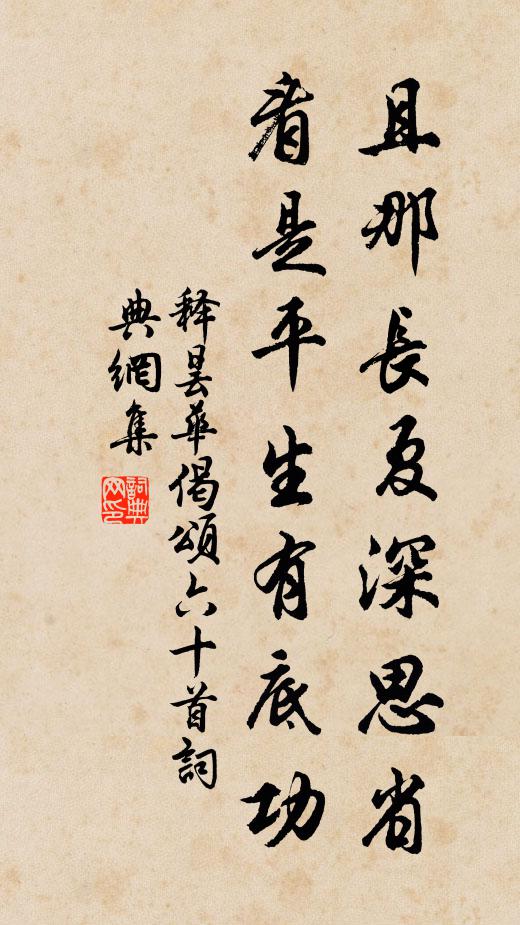 且那長夏深思省
看是平生有底功
释曇華偈頌六十首詞
典網集
詞典網印